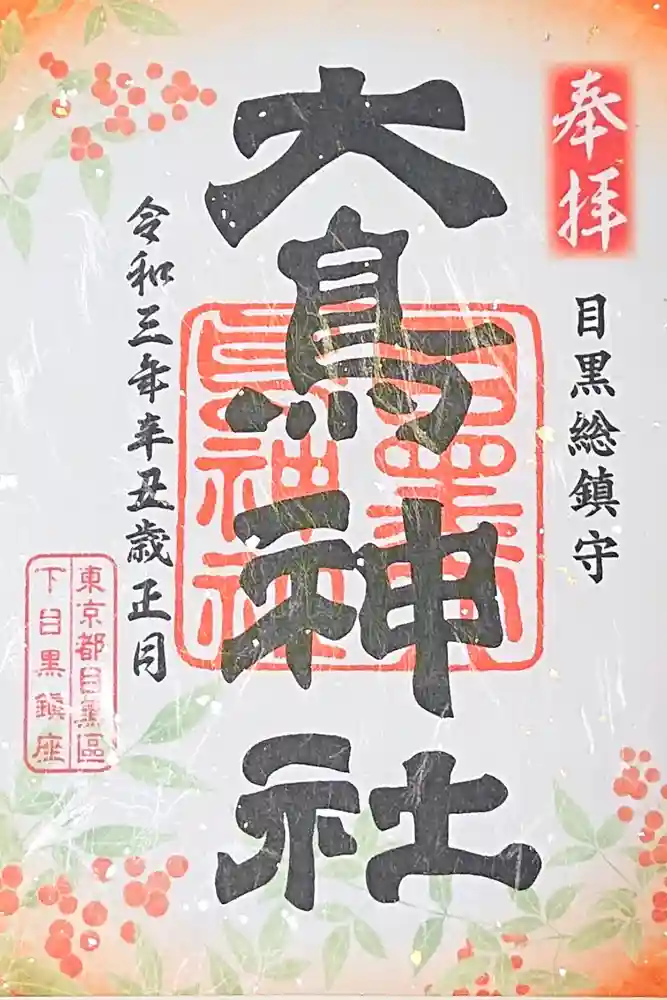 奉拝
目黒総鎮守
大鳥神社
令和三年辛丑歳正月
東京都目黒區
下目黒鎭座